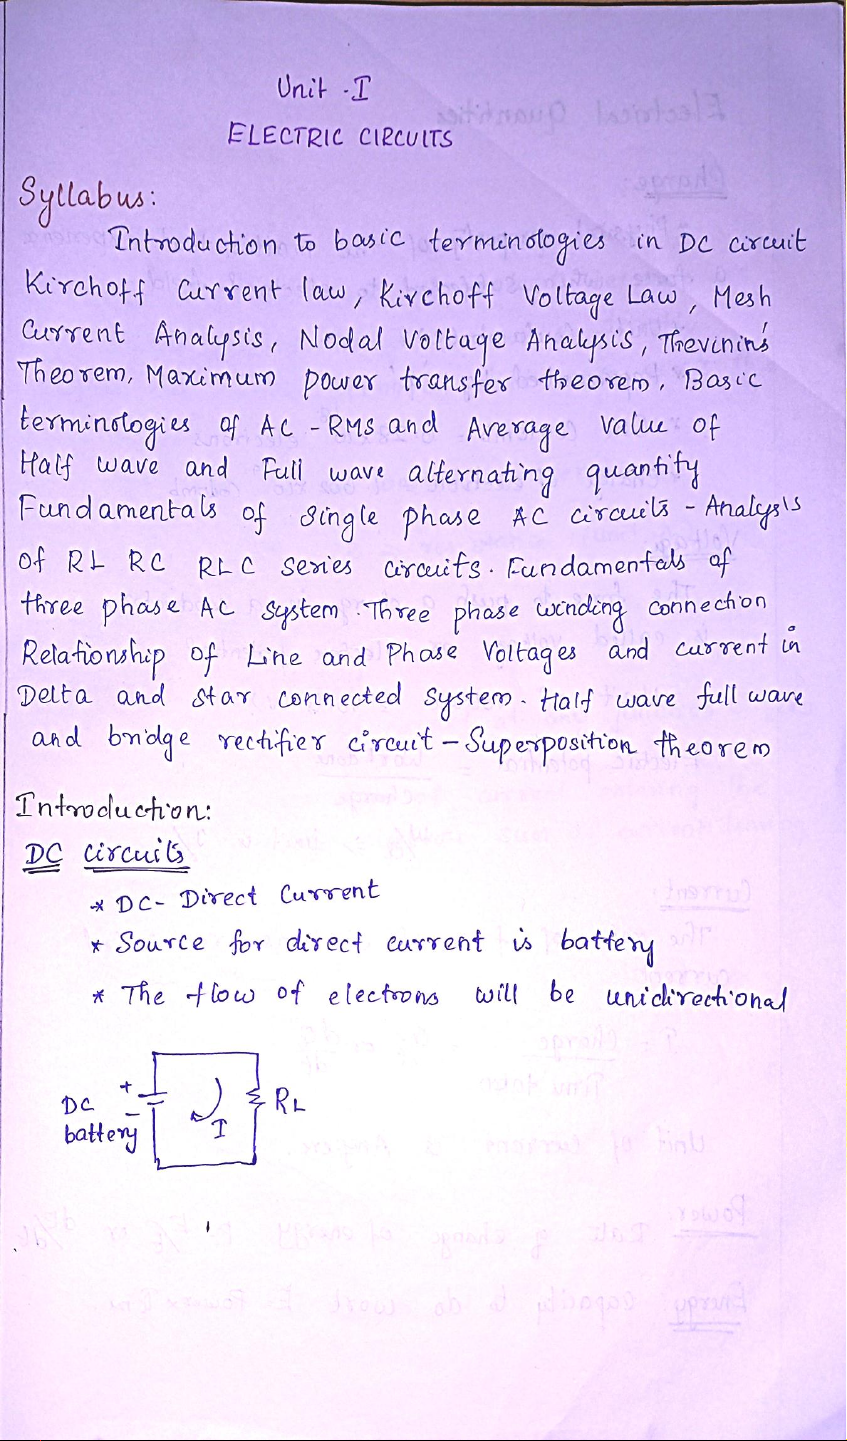 Unit - I
ELECTRIC CIRCUITS
Syllabus:
Introduction to basic terminologies in DC circuit
Kirchoff Current law, Kirchoff Voltage Law, Mesh
Current Analysis, Nodal Voltage Analysis, Thevinin's
Theorem, Maximum power transfer theorem, Basic
terminologies of AC - RMS and Average value of
Half wave and Full wave alternating quantity
Fundamentals of Single phase AC circuits - Analysis
of RL RC RLC series circuits. Fundamentals of
three phase AC system. Three phase winding connection
Relationship of Line and Phase Voltages and current in
Delta and star connected system. Half wave full wave
and bridge rectifier circuit - Superposition theorem
Introduction:
DC circuits
* DC - Direct Current
* Source for direct current is battery
* The flow of electrons will be unidirectional
+
DC
-
battery
I
RL